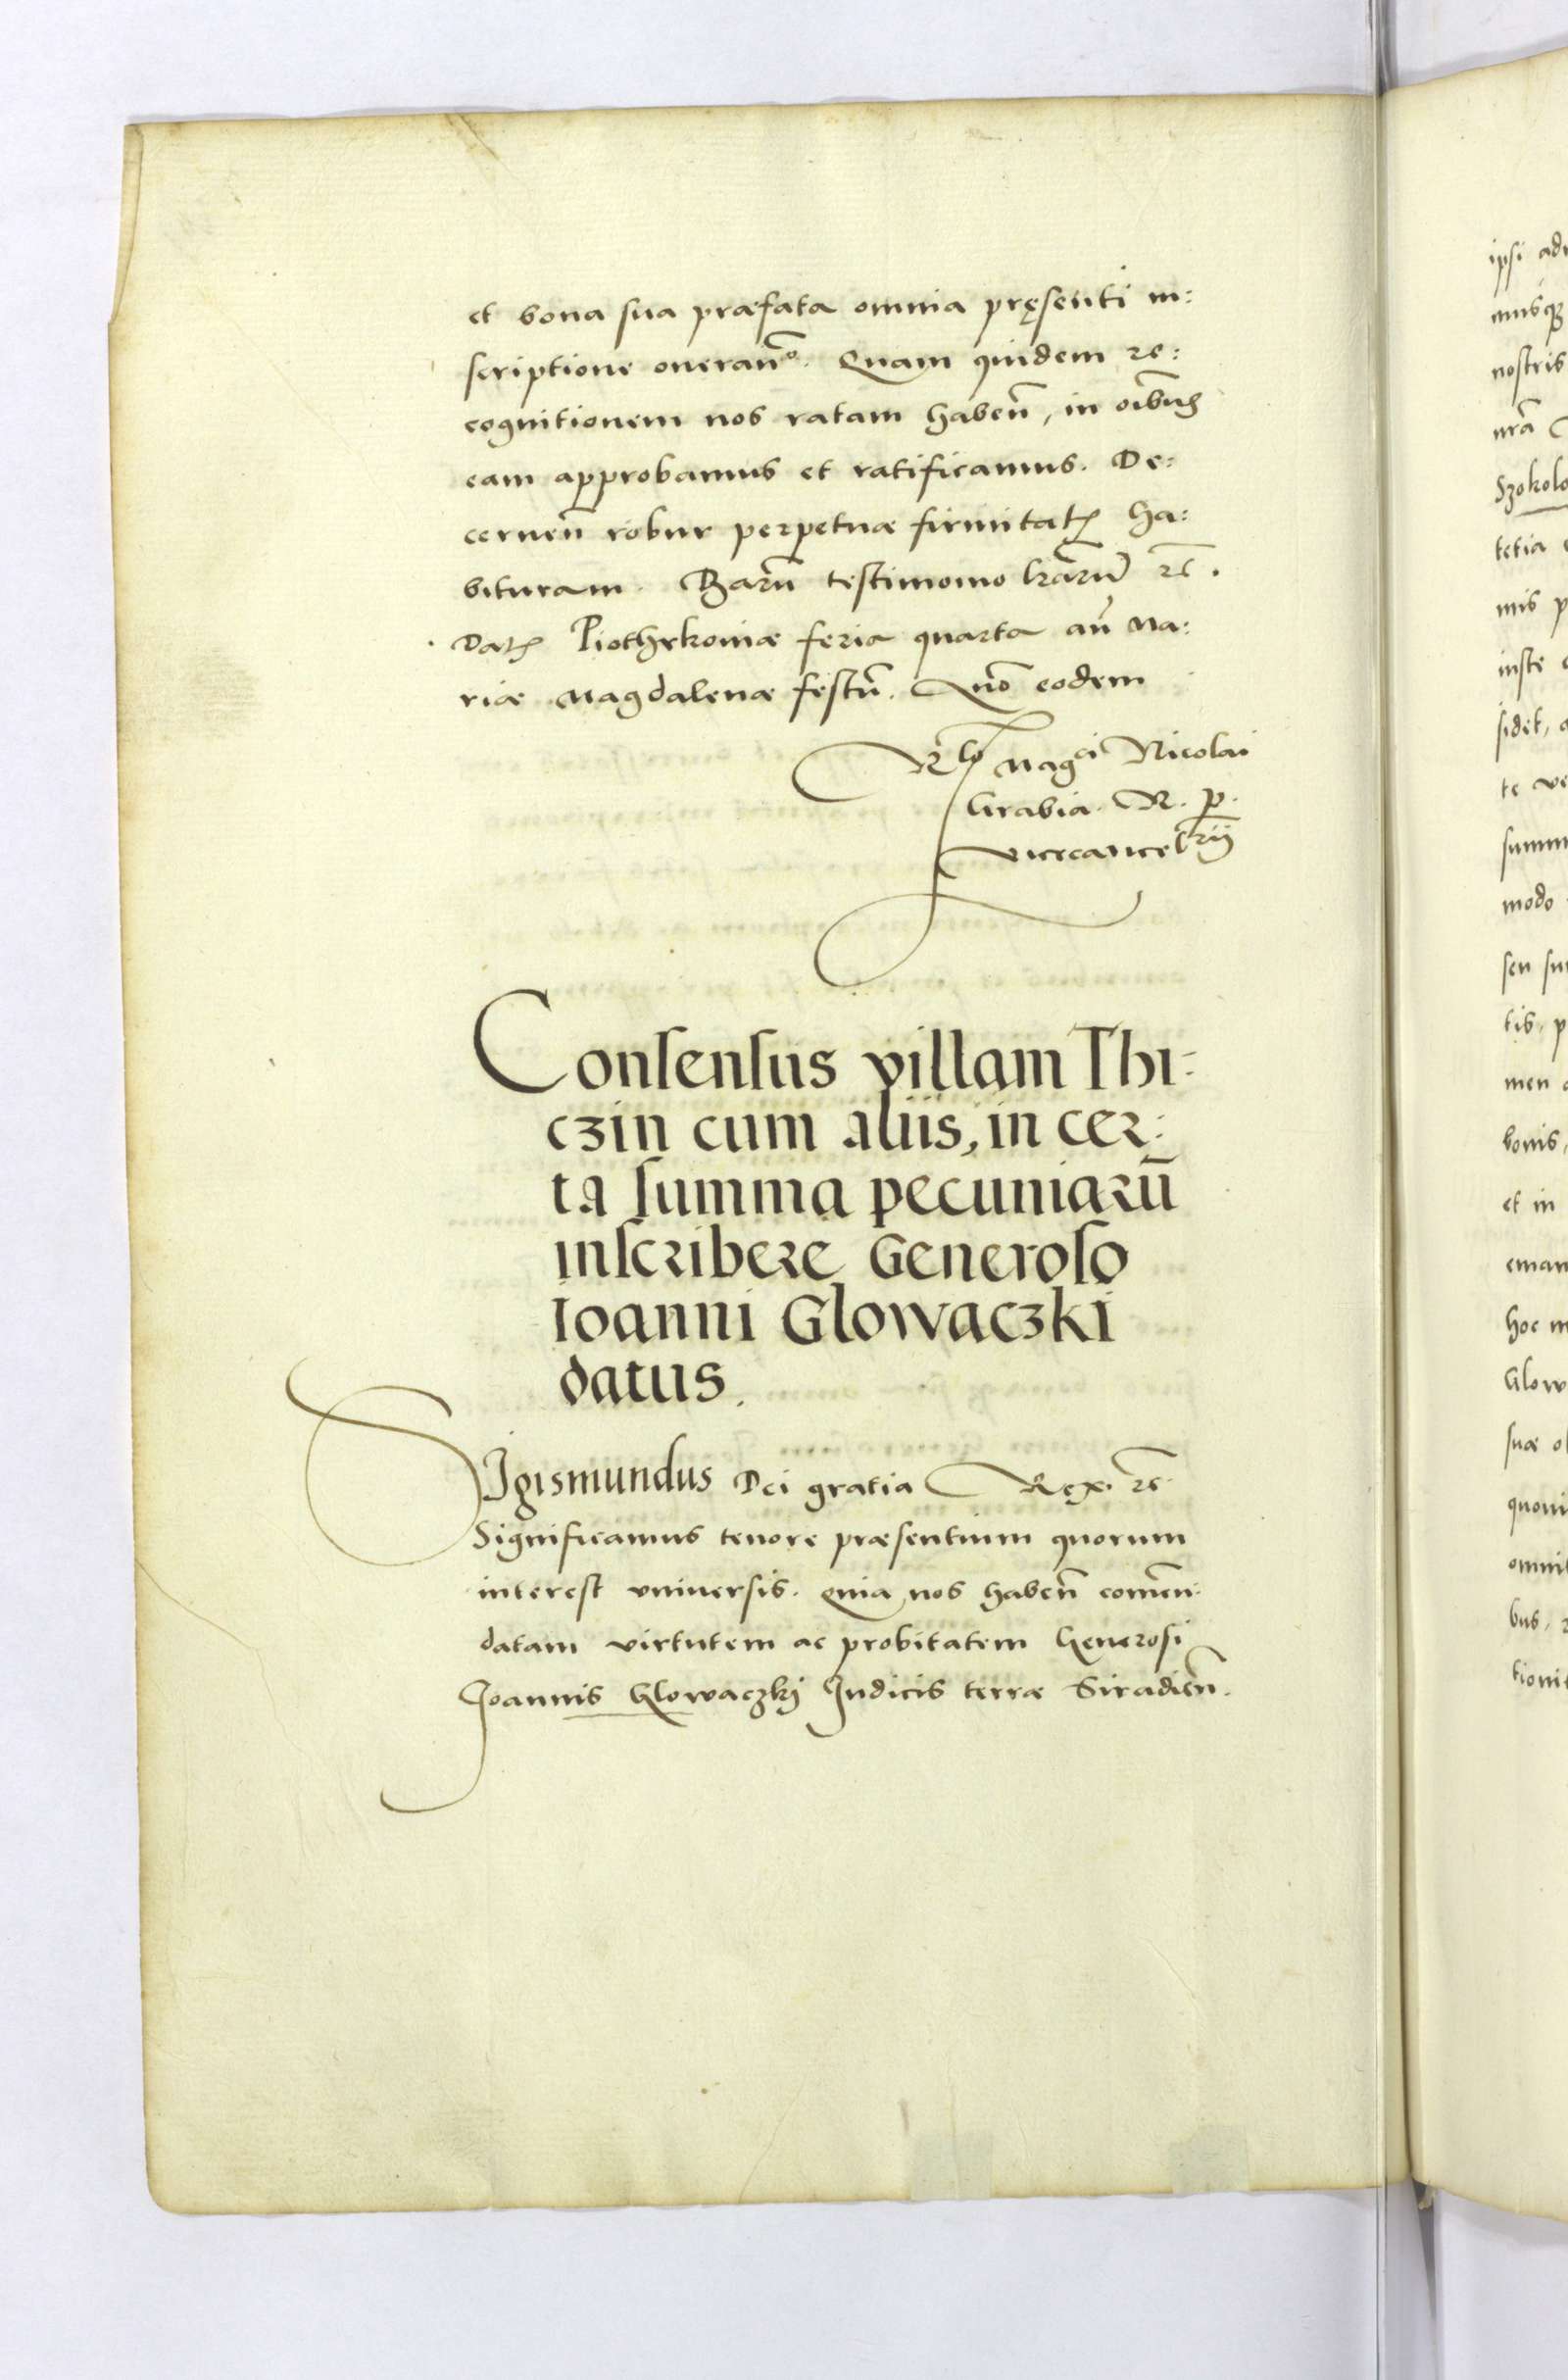 et bona sua præfata omnia pręsenti in:
scriptione onerando. Quam quidem re:
cognitionem nos ratam habeñ, in oĩbus
eam approbamus et ratificamus. De:
cerneñ robur perpetuæ firmitatis ha:
bituram. Harũ testimonio lrarũ rc.
Dat Piothrkoviæ feria quarta añ Ma:
riæ Magdalenæ festũ. Año eodem
Rlo Magci Nicolai
Grabia. R. p.
vicecancelrij
Consensus villam Thi:
czin cum aliis, in cer:
ta summa pecuniarũ
inscribere Generoso
Ioanni Glowaczki
datus.
SIgismundus Dei gratia Rex. rc
Significamus tenore præsentium quorum
interest universis. Quia nos habeñ comen:
datam virtutem ac probitatem Generosi
Joannis Glowaczkj Judicis terræ Siradieñ.
ipsi
nostris
nrã
Szokolo
tetia
mis p
iuste
sidet,
te ve
summ
modo
seu su
tis, p
men
bonis,
et in
eman
hoc
Glow
suæ
quoni
omni
bus,
tioni